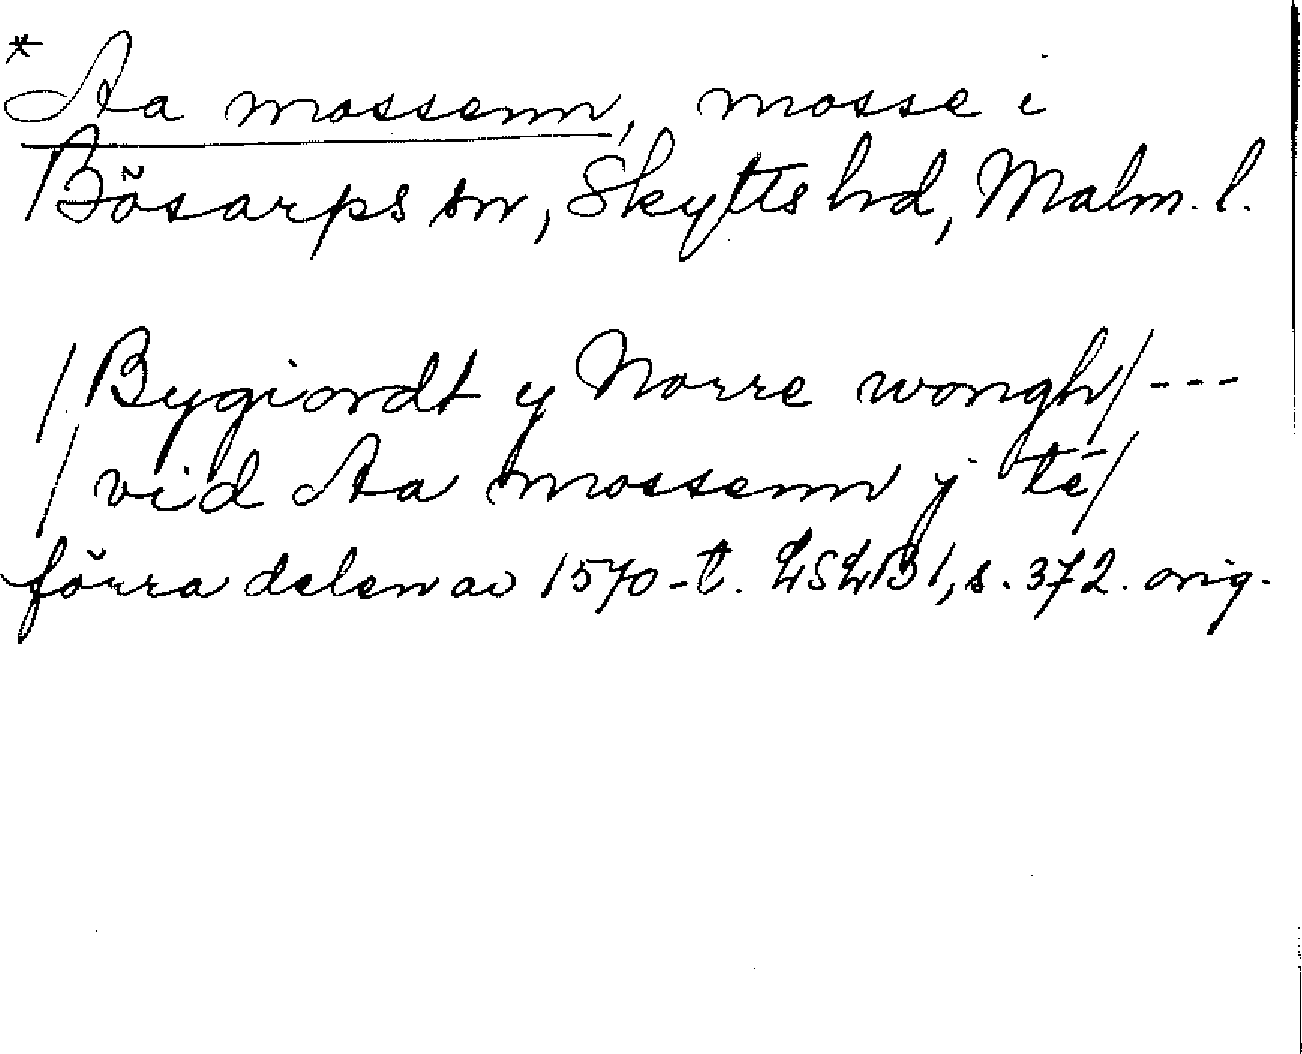 * Aa mossenn, mosse i
Bösarps sn, Skytts hd, Malm. l.
/Bygiordt y Norre wongh/ ---
/vid Aa mossenn j té/
förra delen av 1570-t. LSLB 1, s. 372. orig.